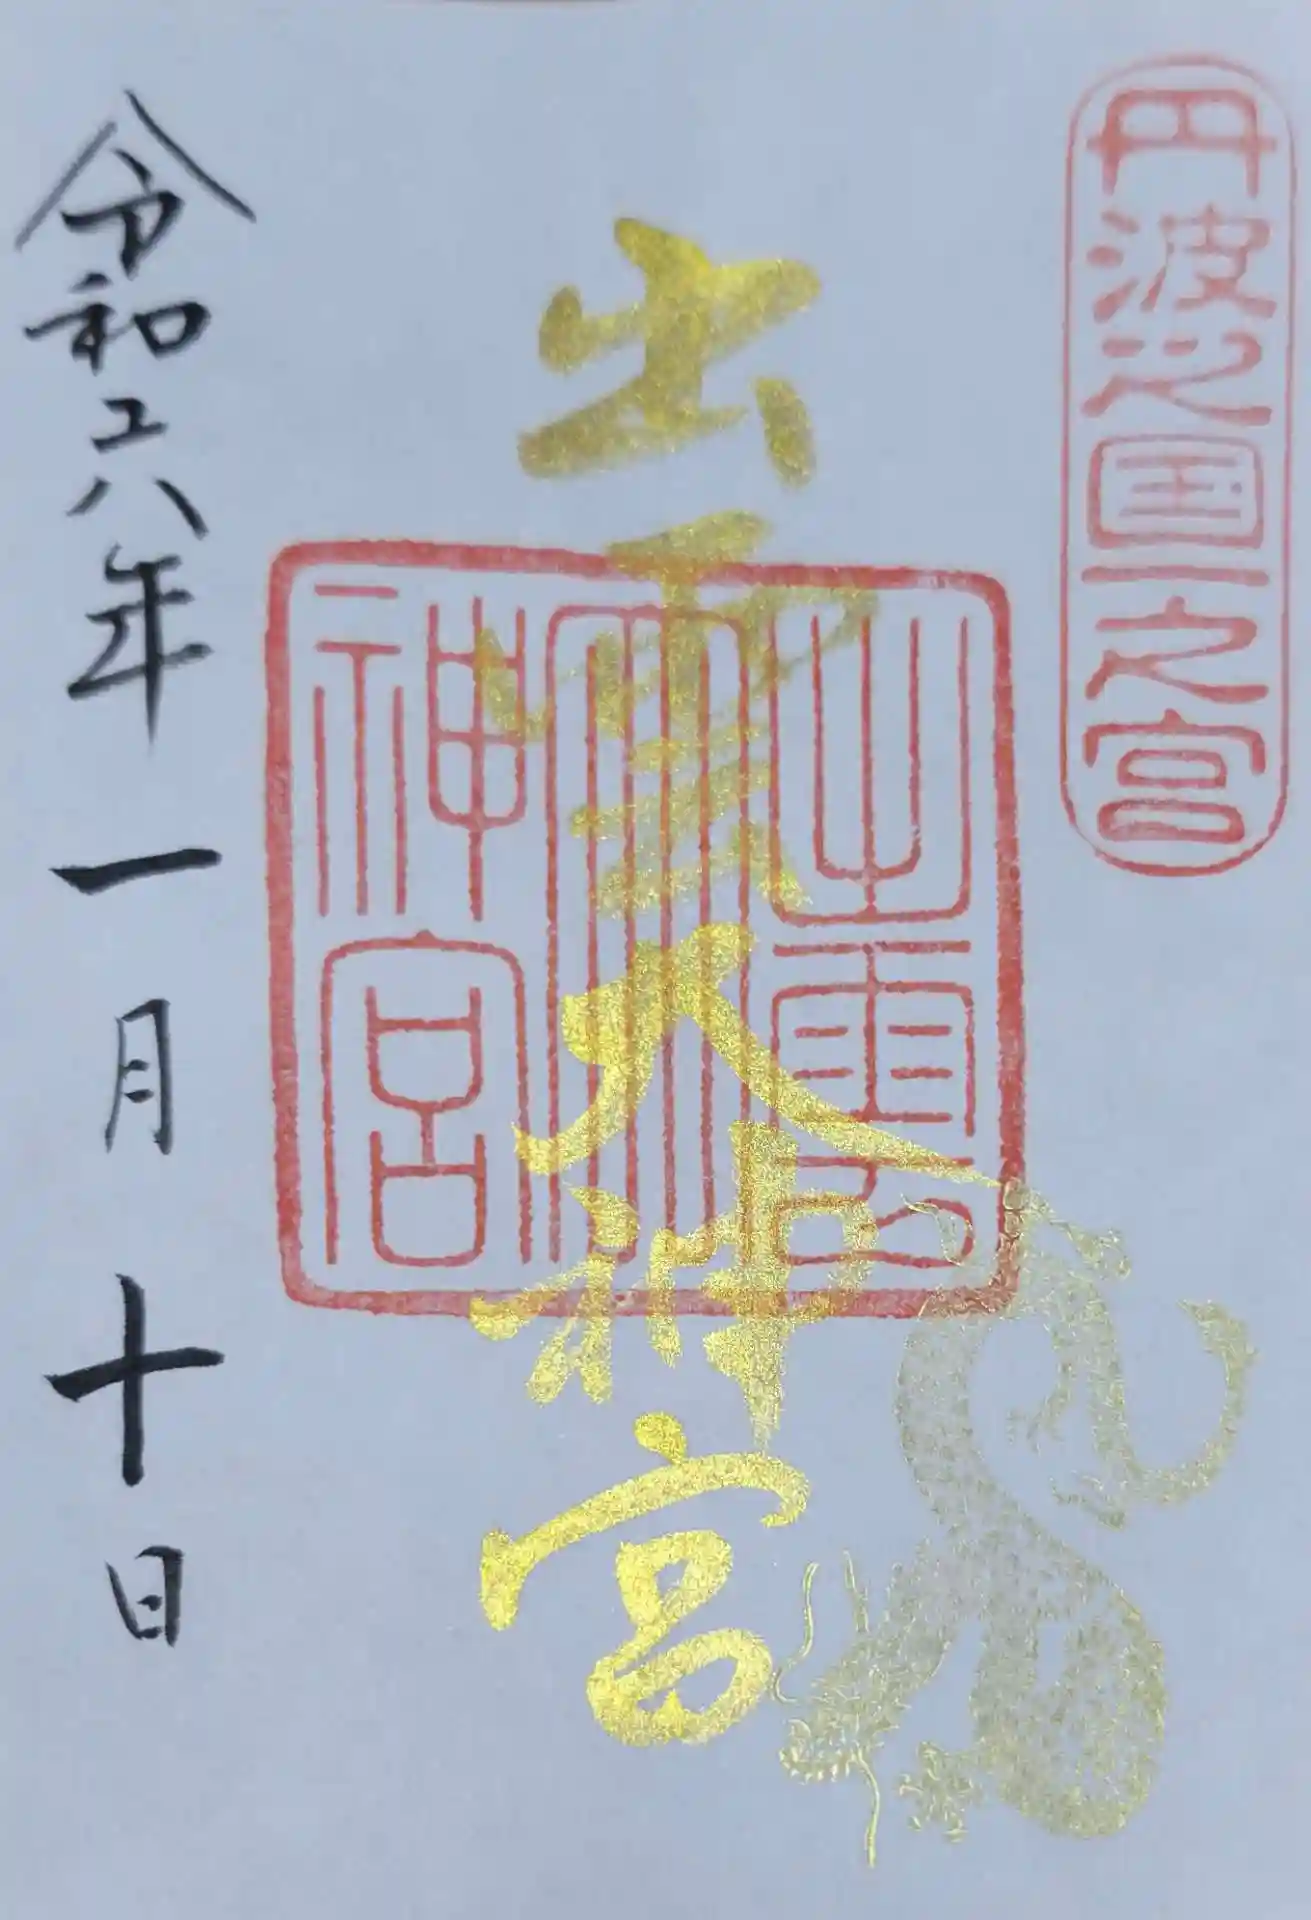 丹波之国一之宮
出雲大神宮
出雲
大
神宮
令和六年一月十日